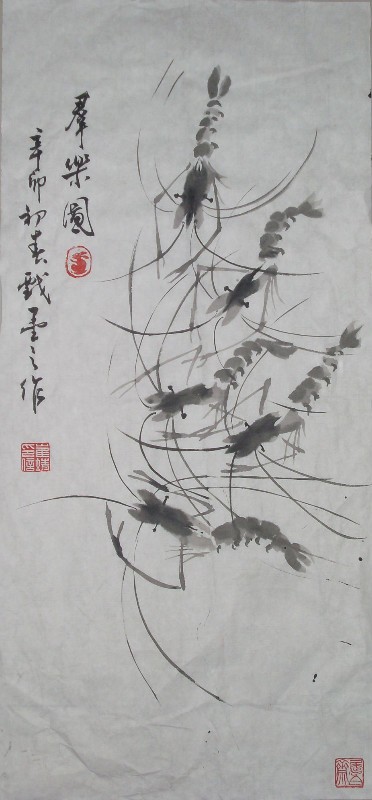 羣樂圖
辛卯初春戲墨之作